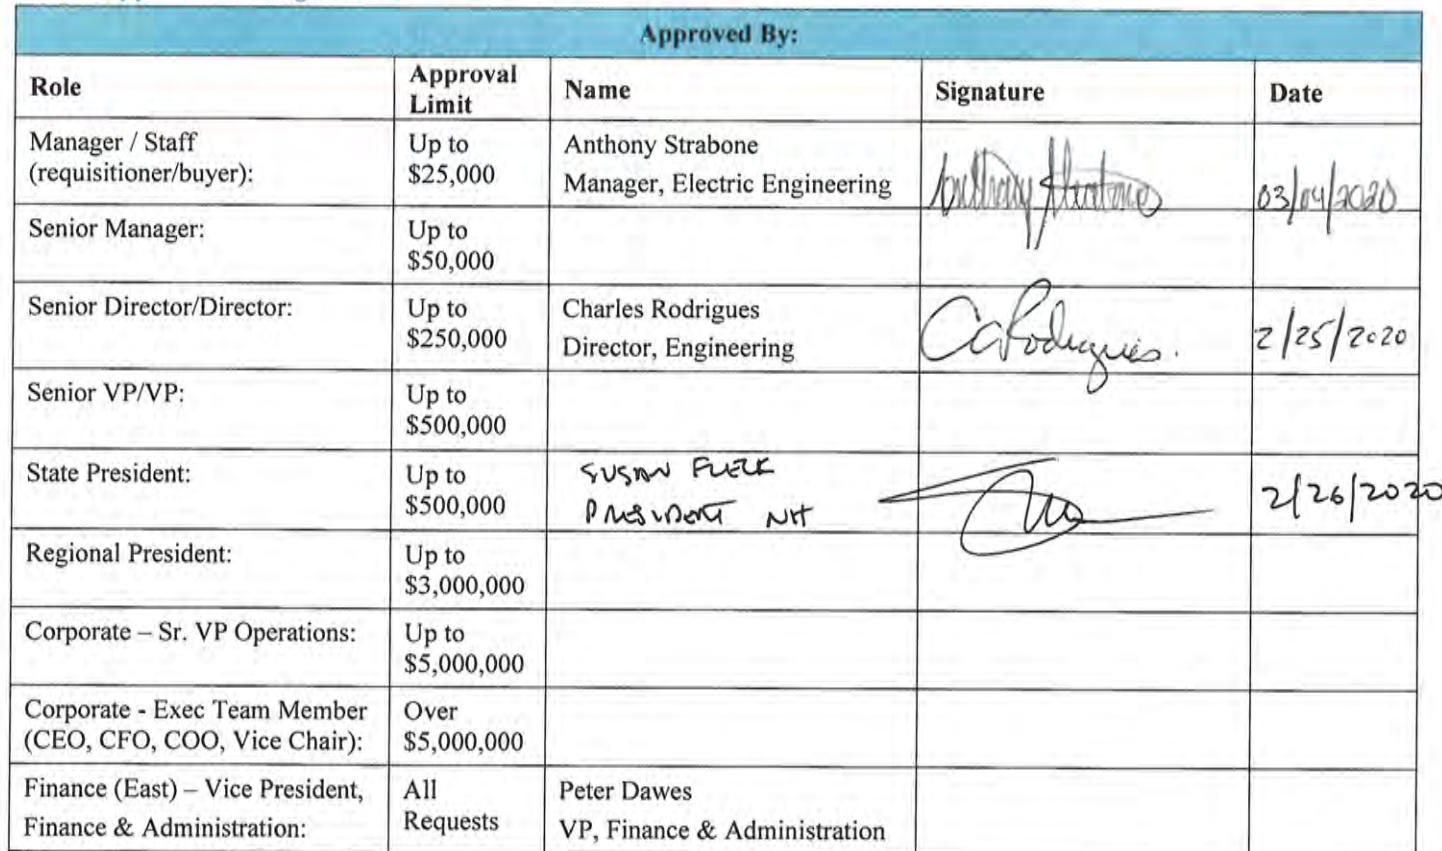 Approved By:
Role
Approval
Limit
Name
Signature
Date
Manager / Staff
(requisitioner/buyer):
Up to
$25,000
Anthony Strabone
Manager, Electric Engineering
Anthony Strabone
03/04/2020
Senior Manager:
Up to
$50,000
Senior Director/Director:
Up to
$250,000
Charles Rodrigues
Director, Engineering
CARodrigues.
2/25/2020
Senior VP/VP:
Up to
$500,000
State President:
Up to
$500,000
SUSAN FLECK
PRESIDENT NH
2/26/2020
Regional President:
Up to
$3,000,000
Corporate – Sr. VP Operations:
Up to
$5,000,000
Corporate - Exec Team Member
(CEO, CFO, COO, Vice Chair):
Over
$5,000,000
Finance (East) – Vice President,
Finance & Administration:
All
Requests
Peter Dawes
VP, Finance & Administration